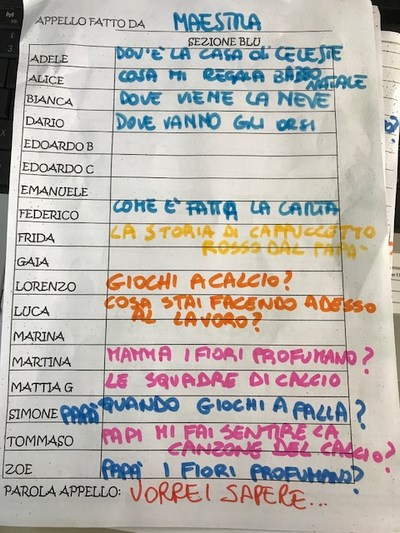 APPELLO FATTO DA MAESTRA
SEZIONE BLU
ADELE DOV'È LA CASA DI CELESTE
ALICE COSA MI REGALA BABBO NATALE
BIANCA DOVE VIENE LA NEVE
DARIO DOVE VANNO GLI ORSI
EDOARDO B
EDOARDO C
EMANUELE
FEDERICO COME È FATTA LA CARTA
FRIDA LA STORIA DI CAPPUCCETTO
ROSSO DAL PAPÀ
GAIA
LORENZO GIOCHI A CALCIO?
LUCA COSA STAI FACENDO ADESSO
AL LAVORO?
MARINA
MARTINA MAMMA I FIORI PROFUMANO?
MATTIA G LE SQUADRE DI CALCIO
SIMONE PAPÀ QUANDO GIOCHI A PALLA?
TOMMASO PAPI MI FAI SENTIRE LA
CANZONE DEL CALCIO?
ZOE PAPÀ I FIORI PROFUMANO?
PAROLA APPELLO: VORREI SAPERE...